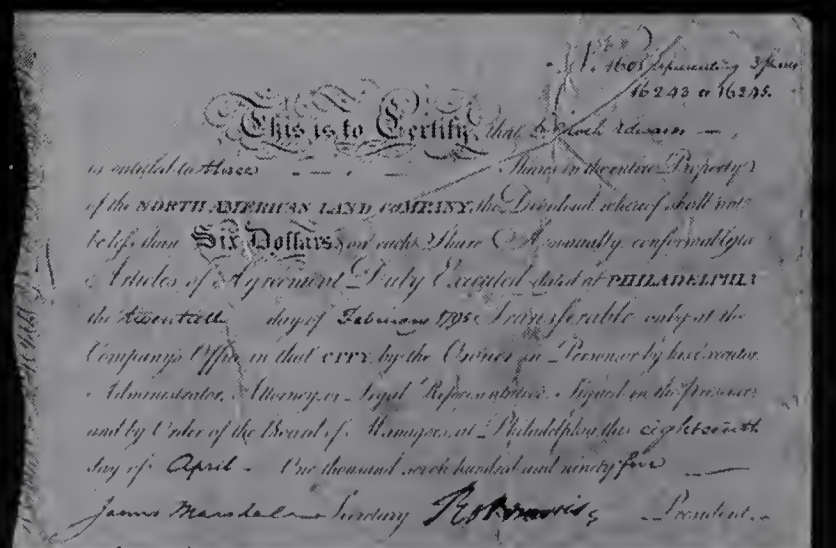 No. 1605 representing 3 shares
16243 a 16245.
This is to Certify, that Enoch Edwards
is entitled to three Shares in the entire Property
of the NORTH AMERICAN LAND COMPANY, the Dividend whereof shall not
be less than Six Dollars on each Share Annually, conformably to
Articles of Agreement Duly Executed dated at PHILADELPHIA
the twentieth day of February 1795 Transferable only at the
Company's Office in that CITY, by the Owner in Person or by his Executor
Administrator, Attorney, or Legal Representative. Signed in the presence
and by Order of the Board of Managers, at Philadelphia this eighteenth
day of April One thousand seven hundred and ninety five
James Marshall Secretary Rob Morris President